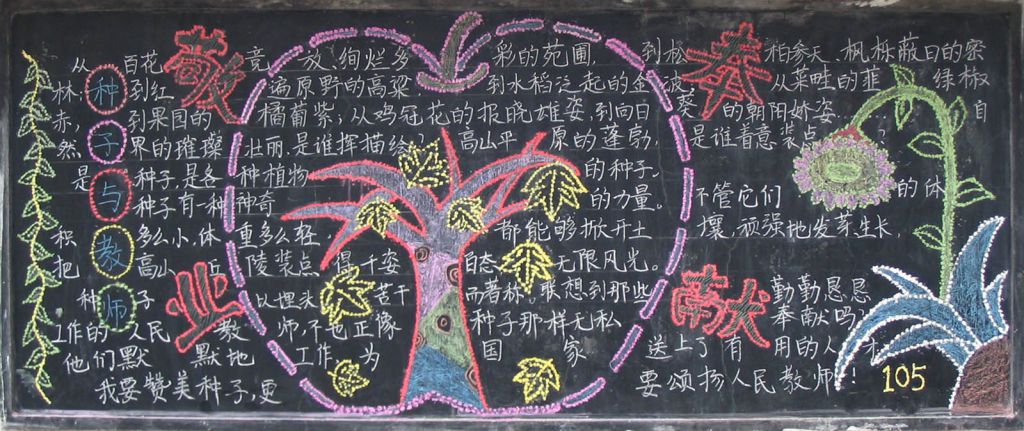 种子与教师
敬业
奉献
从百花竞放、绚烂多彩的苑圃,到松柏参天、枫栎蔽日的密
林,到红遍原野的高粱到水稻泛起的金波,从菜畦的韭绿椒
赤,到果园的橘葡紫;从鸡冠花的报晓雄姿,到向日葵的朝阳娇姿。自
然界的璀璨壮丽,是谁挥描绘高山平原的蓬勃,是谁着意装点
是种子,是各种植物的种子。
种子有一种神奇的力量。不管它们的体
积多么小,体重多么轻,都能够掀开土壤,顽强地发芽生长,
把高山丘陵装点得千姿百态、无限风光。
种子以埋头苦干而著称,联想到那些勤勤恳恳
工作的人民教师,不也正像种子那样无私奉献吗?
他们默默地工作,为国家送上了有用的人才。
我要赞美种子,更要颂扬人民教师!
105